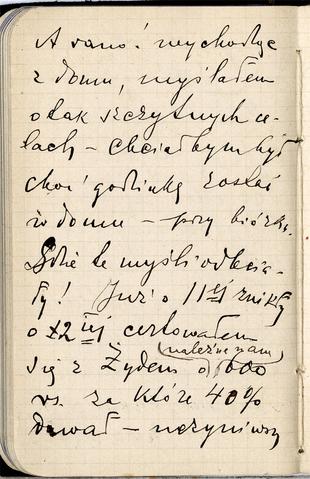 A rano! wychodząc
z domu, myślałem
o tak szczytnych ce-
lach – chciałbym był
choć godzinkę zostać
w domu – przy biórku.
Gdzie te myśli odbieża-
ły! Już o 11ej znikły
o 12 ej certowałem
(należne nam)
się z Żydem o 1600
rs. za które 40%
dawał – uczyniwszy